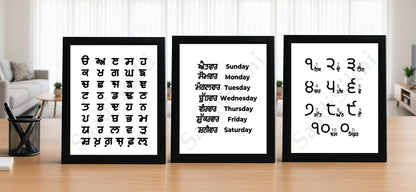 ੳ ਅ ੲ ਸ ਹ
ਕ ਖ ਗ ਘ ਙ
ਚ ਛ ਜ ਝ ਞ
ਟ ਠ ਡ ਢ ਣ
ਤ ਥ ਦ ਧ ਨ
ਪ ਫ ਬ ਭ ਮ
ਯ ਰ ਲ ਵ ੜ
ਸ਼ ਖ਼ ਗ਼ ਜ਼ ਫ਼ ਲ਼
ਐਤਵਾਰ Sunday
ਸੋਮਵਾਰ Monday
ਮੰਗਲਵਾਰ Tuesday
ਬੁੱਧਵਾਰ Wednesday
ਵੀਰਵਾਰ Thursday
ਸ਼ੁੱਕਰਵਾਰ Friday
ਸ਼ਨੀਵਾਰ Saturday
੧ ੨ ੩
੪ ੫ ੬
੭ ੮ ੯
੧੦ ੦